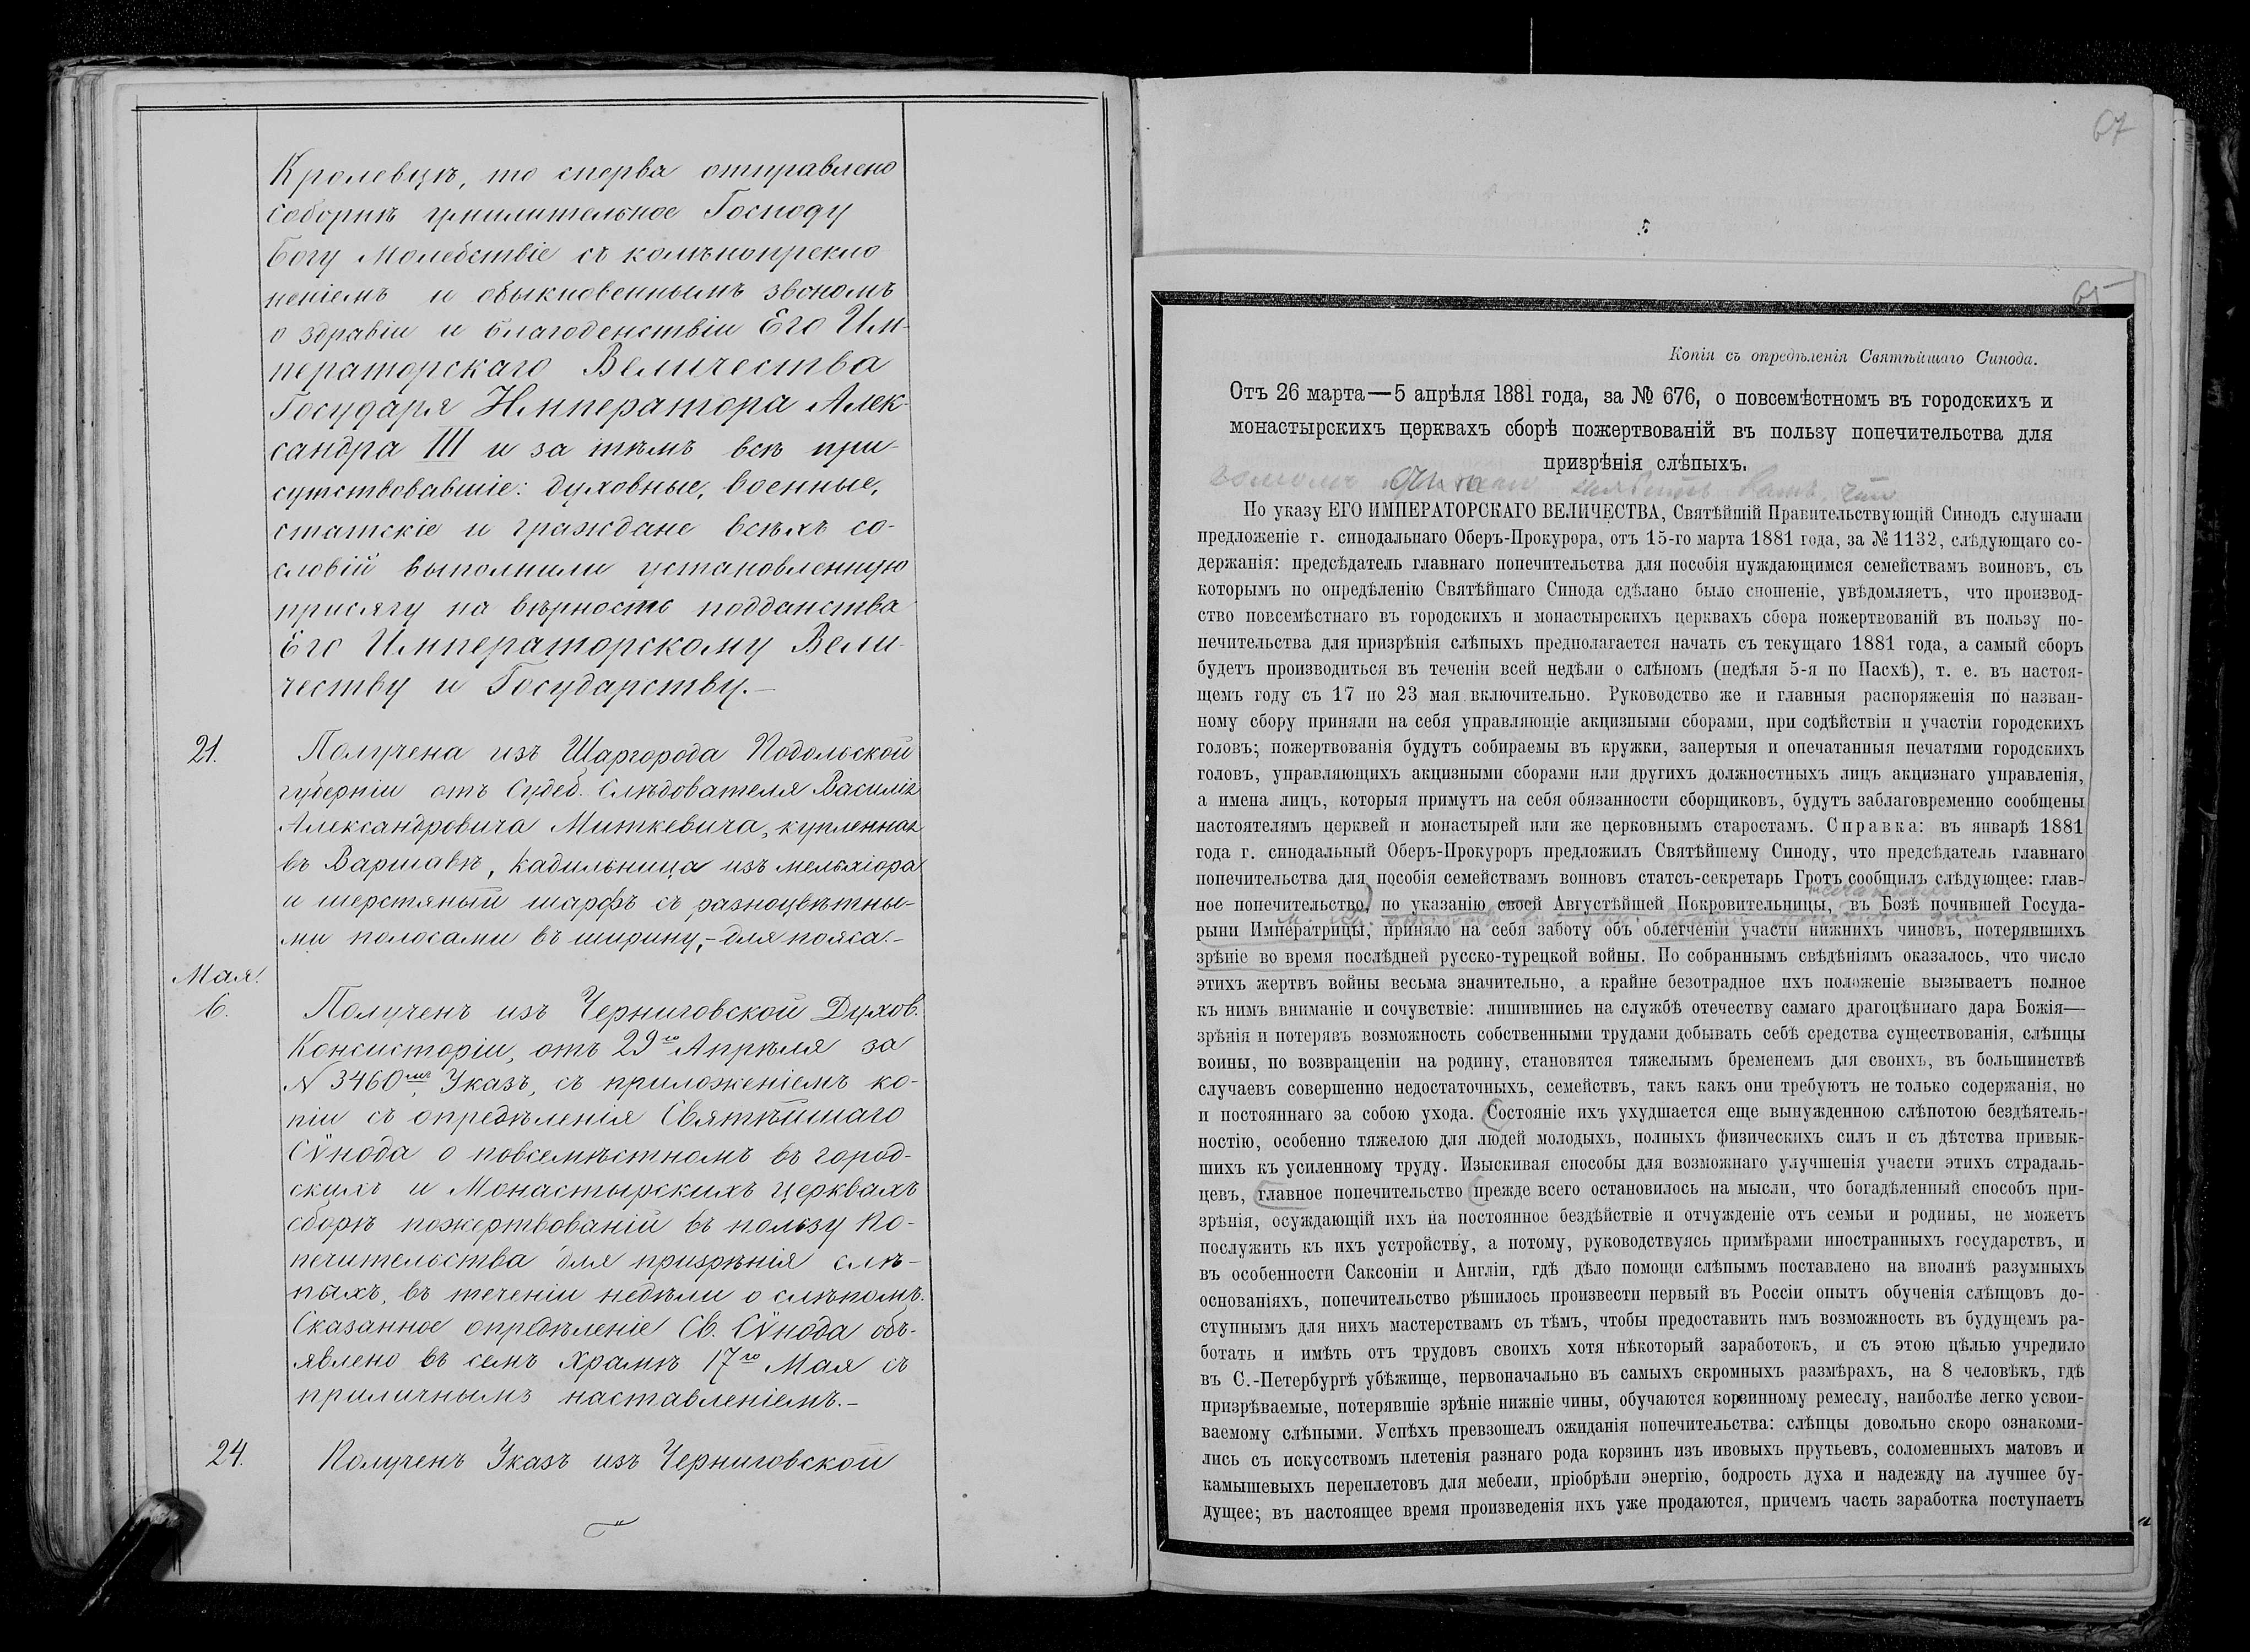 Кролевцѣ, то сперва отправлено
соборнѣ умилительное Господу
Богу Молебствіе съ колѣнопрекло
неніемъ и обыкновеннымъ звономъ
о здравіи и благоденствіи Его Им-
ператорскаго Величества
Государя Императора Алек-
сандра III и за тѣмъ всѣ при-
сутствовавшіе: духовные, военные,
статскіе и граждане всѣхъ со-
словій выполнили установленную
присягу на вѣрность подданства
Его Императорскому Вели-
честву и Государству.—
21. Получена изъ Шаргорода Подольской
губерніи отъ Судеб. Слѣдователя Василія
Александровича Миткевича, купленная
въ Варшавѣ, кадильница изъ мельхіора
и шерстяный шарфъ съ разноцвѣтны-
ми полосами въ ширину,— для пояса.—
Мая.
6. Полученъ изъ Черниговской Духов.
Консисторіи, отъ 29го Апрѣля за
N 3460мъ, Указъ, съ приложеніемъ ко-
піи съ опредѣленія Святѣйшаго
Сѵнода о повсемѣстномъ въ город-
скихъ и Монастырскихъ церквахъ
сборѣ пожертвованій въ пользу По-
печительства для призрѣнія слѣ-
пыхъ, въ теченіи недѣли о слѣпомъ.
Сказанное опредѣленіе Св. Сѵнода объ-
явлено въ семъ храмѣ 17го Мая съ
приличнымъ наставленіемъ.—
24. Полученъ Указъ изъ Черниговской
67
65
Копія съ опредѣленія Святѣйшаго Синода.
Отъ 26 марта—5 апрѣля 1881 года, за № 676, о повсемѣстномъ въ городскихъ и
монастырскихъ церквахъ сборѣ пожертвованій въ пользу попечительства для
призрѣнія слѣпыхъ.
По указу ЕГО ИМПЕРАТОРСКАГО ВЕЛИЧЕСТВА, Святѣйшій Правительствующій Синодъ слушали
предложеніе г. синодальнаго Оберъ-Прокурора, отъ 15-го марта 1881 года, за № 1132, слѣдующаго со-
держанія: предсѣдатель главнаго попечительства для пособія нуждающимся семействамъ воиновъ, съ
которымъ по опредѣленію Святѣйшаго Синода сдѣлано было сношеніе, увѣдомляетъ, что производ-
ство повсемѣстнаго въ городскихъ и монастырскихъ церквахъ сбора пожертвованій въ пользу по-
печительства для призрѣнія слѣпыхъ предполагается начать съ текущаго 1881 года, а самый сборъ
будетъ производиться въ теченіи всей недѣли о слѣпомъ (недѣля 5-я по Пасхѣ), т. е. въ настоя-
щемъ году съ 17 по 23 мая включительно. Руководство же и главныя распоряженія по назван-
ному сбору приняли на себя управляющіе акцизными сборами, при содѣйствіи и участіи городскихъ
головъ; пожертвованія будутъ собираемы въ кружки, запертыя и опечатанныя печатями городскихъ
головъ, управляющихъ акцизными сборами или другихъ должностныхъ лицъ акцизнаго управленія,
а имена лицъ, которыя примутъ на себя обязанности сборщиковъ, будутъ заблаговременно сообщены
настоятелямъ церквей и монастырей или же церковнымъ старостамъ. Справка: въ январѣ 1881
года г. синодальный Оберъ-Прокуроръ предложилъ Святѣйшему Синоду, что предсѣдатель главнаго
попечительства для пособія семействамъ воиновъ статсъ-секретарь Гротъ сообщилъ слѣдующее: глав-
ное попечительство, по указанію своей Августѣйшей Покровительницы, въ Бозѣ почившей Госуда-
рыни Императрицы, приняло на себя заботу объ облегченіи участи нижнихъ чиновъ, потерявшихъ
зрѣніе во время послѣдней русско-турецкой войны. По собраннымъ свѣдѣніямъ оказалось, что число
этихъ жертвъ войны весьма значительно, а крайне безотрадное ихъ положеніе вызываетъ полное
къ нимъ вниманіе и сочувствіе: лишившись на службѣ отечеству самаго драгоцѣннаго дара Божія—
зрѣнія и потерявъ возможность собственными трудами добывать себѣ средства существованія, слѣпцы
воины, по возвращеніи на родину, становятся тяжелымъ бременемъ для своихъ, въ большинствѣ
случаевъ совершенно недостаточныхъ, семействъ, такъ какъ они требуютъ не только содержанія, но
и постояннаго за собою ухода. Состояніе ихъ ухудшается еще вынужденною слѣпотою бездѣятель-
ностію, особенно тяжелою для людей молодыхъ, полныхъ физическихъ силъ и съ дѣтства привык-
шихъ къ усиленному труду. Изыскивая способы для возможнаго улучшенія участи этихъ страдаль-
цевъ, главное попечительство прежде всего остановилось на мысли, что богадѣленный способъ при-
зрѣнія, осуждающій ихъ на постоянное бездѣйствіе и отчужденіе отъ семьи и родины, не можетъ
послужить къ ихъ устройству, а потому, руководствуясь примѣрами иностранныхъ государствъ, и
въ особенности Саксоніи и Англіи, гдѣ дѣло помощи слѣпымъ поставлено на вполнѣ разумныхъ
основаніяхъ, попечительство рѣшилось произвести первый въ Россіи опытъ обученія слѣпцовъ до-
ступнымъ для нихъ мастерствамъ съ тѣмъ, чтобы предоставить имъ возможность въ будущемъ ра-
ботать и имѣть отъ трудовъ своихъ хотя нѣкоторый заработокъ, и съ этою цѣлью учредило
въ С.-Петербургѣ убѣжище, первоначально въ самыхъ скромныхъ размѣрахъ, на 8 человѣкъ, гдѣ
призрѣваемые, потерявшіе зрѣніе нижніе чины, обучаются корзинному ремеслу, наиболѣе легко усвои-
ваемому слѣпыми. Успѣхъ превзошелъ ожиданія попечительства: слѣпцы довольно скоро ознакоми-
лись съ искусствомъ плетенія разнаго рода корзинъ изъ ивовыхъ прутьевъ, соломенныхъ матовъ и
камышевыхъ переплетовъ для мебели, пріобрѣли энергію, бодрость духа и надежду на лучшее бу-
дущее; въ настоящее время произведенія ихъ уже продаются, причемъ часть заработка поступаетъ